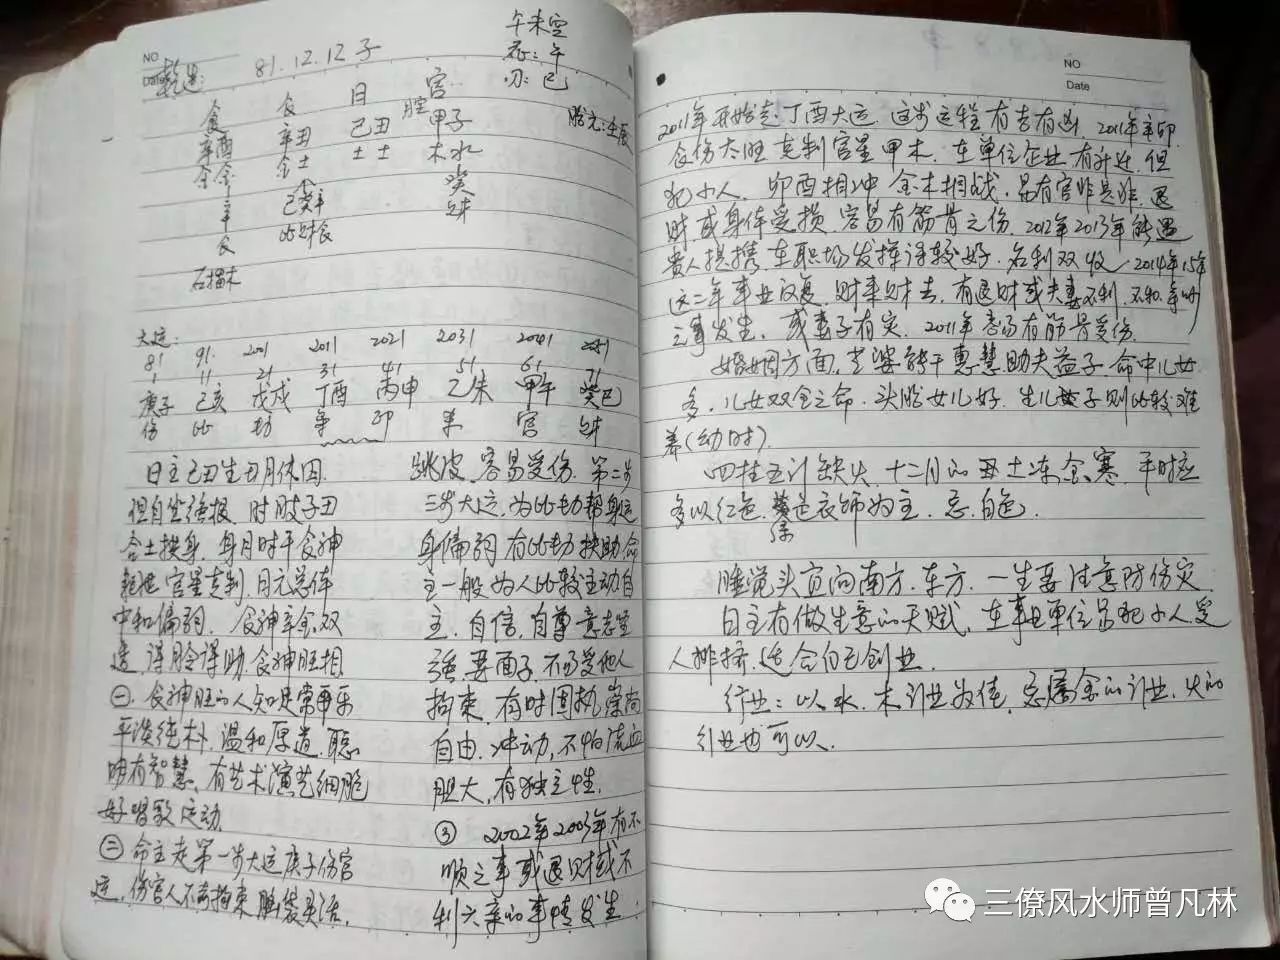 NO
Date
乾造: 81.12.12子
午未空
禄:午
刃:巳
食 食 日 官
辛酉 辛丑 己丑 甲子
金金 金土 土土 木水
辛 己癸辛 癸
食 比财食 财
石榴木
胎元:壬辰
大运:
81 91 2001 2011 2021 2031 2041 2051
1 11 21 31 41 51 61 71
庚子 己亥 戊戌 丁酉 丙申 乙未 甲午 癸巳
伤 比 劫 枭 印 杀 官 财
日主己丑生丑月休囚.
但自坐强根, 时肢子丑
合土拱身. 年月时干食神
官星克制, 日元总体
中和偏弱. 食神辛金双
透, 得令得助, 食神旺相
㊀. 食神旺的人知足常乐
平淡纯朴, 温和厚道, 聪
明有智慧, 有艺术演艺细胞
好唱歌运动.
㊁ 命主走第一步大运庚子伤官
运, 伤官人不喜拘束, 脑袋灵活,
跳皮, 容易受伤. 第二步
三步大运, 为比劫帮身运
身偏弱有比劫扶助, 命
主一般为人比较主动自
主, 自信, 自尊意志坚
强, 要面子, 不受他人
拘束, 有时固执, 崇尚
自由, 冲动, 不怕流血
胆大, 有独立性.
③ 2002年2003年有不
顺之事或退财或不
利六亲的事情发生.
NO
Date
2011年开始走丁酉大运, 这步运程有吉有凶, 2011年辛卯
食伤太旺克制官星甲木. 在单位企业有升迁, 但
犯小人, 卯酉相冲金木相战, 易有官非是非, 退
财或身体受损, 容易有筋骨之伤. 2012年2013年能遇
贵人提携, 在职场发挥得较好, 名利双收, 2014年15年
这二年事业反复, 财来财去, 有退财或夫妻不利, 不和, 争吵
之事发生, 或妻子有灾. 2011年容易有筋骨受伤.
婚姻方面, 老婆能干惠慧助夫益子, 命中儿女
多, 儿女双全之命, 头胎女儿好, 生儿子则比较难
养(幼时).
四柱五行缺火, 十二月的丑土冻金寒, 平时应
多以红色, 绿色衣饰为主. 忌: 白色.
睡觉头宜向南方. 东方. 一生要注意防伤灾
日主有做生意的天赋, 在事业单位易犯小人, 受
人排挤, 适合自己创业.
行业: 以水, 木行业为佳, 忌属金的行业, 火的
行业也可以.
三僚风水师曾凡林